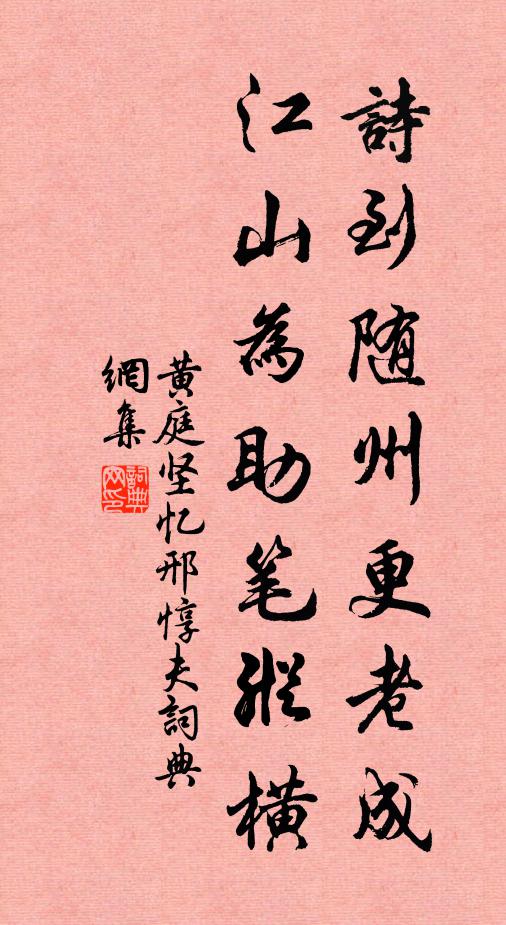 詩到随州更老成
江山為助笔縱橫
黄庭坚忆邢惇夫詞典
網集
詞典
网印